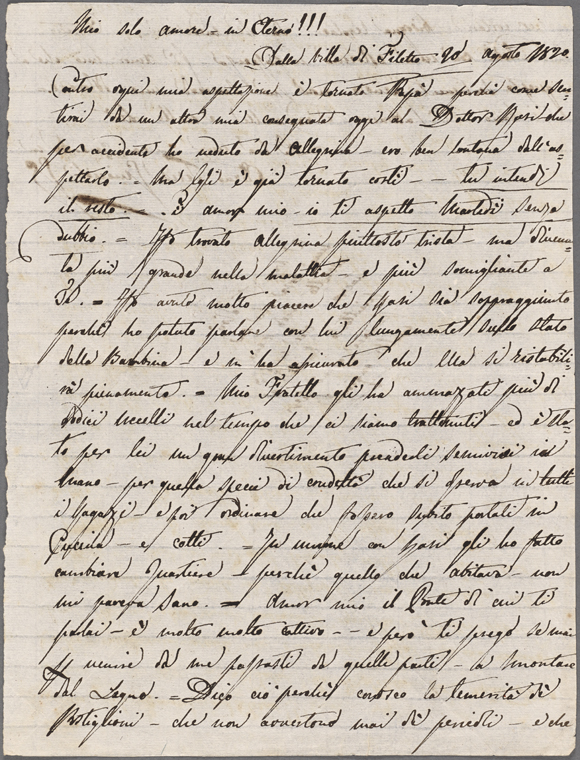 Mio solo amore in Eterno!!!
Dalla villa di Filetto 20 agosto 1820.
Contro ogni mia aspettazione è tornato Papà perciò come sen-
tirai da un altra mia consegnata oggi al Dottor Rasi che
per accidente ho veduto da Allegrina – ero ben lontana dall'as-
pettarlo. = Ma Egli è già tornato costì – tu intendi
il resto. È amor mio – io ti aspetto Martedì senza
dubbio. = Ho trovato Allegrina piuttosto trista – ma divenu-
ta più grande nella malattia – e più somigliante a
Te. = Ho avuto molto piacere che Rasi sia sopraggiunto
perchè ho potuto parlare con lui lungamente sullo stato
della Bambina – e m'ha assicurato che Ella si ristabili-
rà pienamente. = Mio Fratello gli ha ammazzati più di
dodici uccelli nel tempo che ci siamo trattenuti – ed è sta-
to per lei un gran divertimento prenderli semivivi in
mano – per quella specie di crudeltà che si osserva in tutti
i ragazzi – e poi ordinare che fossero subito portati in
Cucina – e cotti. = In unione con Rasi gli ho fatto
cambiare Quartiere – perchè quello che abitava – non
mi pareva sano. = Amor mio il Ponte di cui ti
parlai – è molto molto cattivo – e però ti prego se mai
venire da me passasti da quelle parti – a smontare
dal Legno. = Dico ciò perchè conosco la temerità di
Postiglioni – che non avvertono mai di pericoli – e che